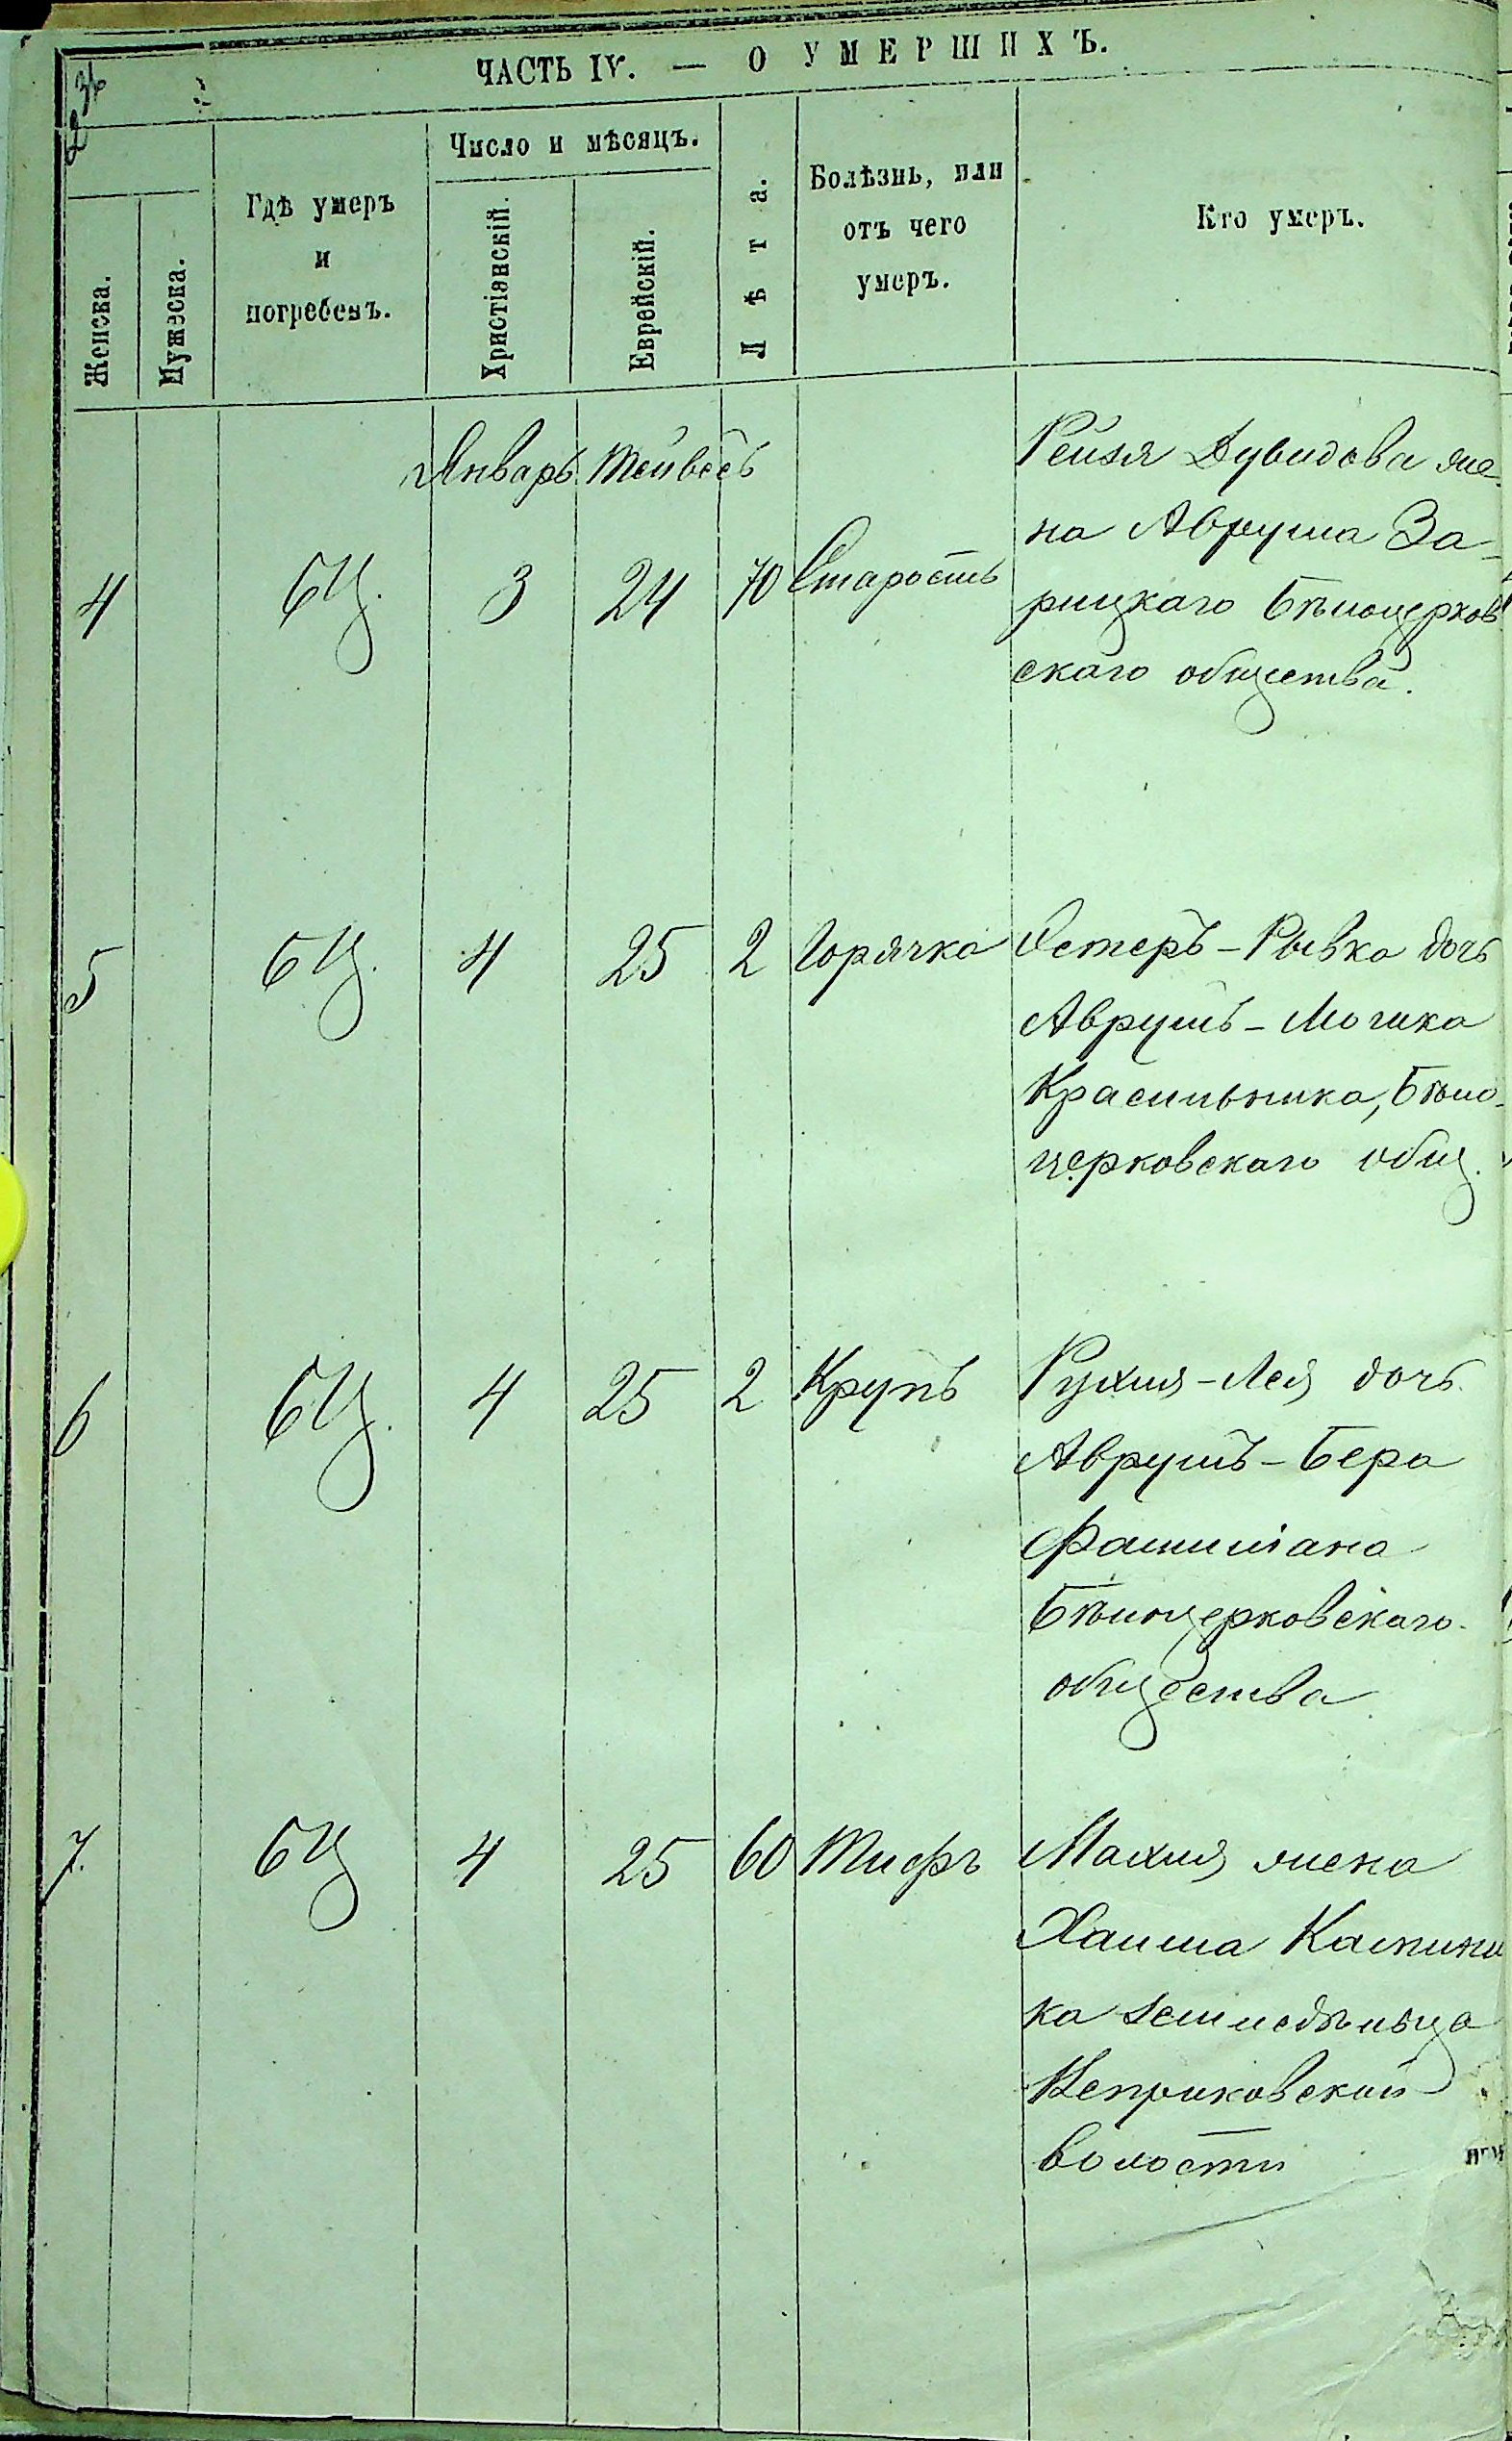 ЧАСТЬ IV. — О УМЕРШИХЪ.
Женска.
Мужеска.
Гдѣ умеръ
и
погребенъ.
Число и мѣсяцъ.
Христіанскій.
Еврейскій.
Лѣта.
Болѣзнь, или
отъ чего
умеръ.
Кто умеръ.
Январь Тейвесъ
4 БЦ. 3 24 70 Старость
Рейзя Дувидова же-
на Аврума За-
рицкаго Бѣлоцерков
скаго общества.
5 БЦ. 4 25 2 Горячка
Эстеръ-Рывка дочь
Аврумъ-Мошка
Красильника, Бѣло-
церковскаго общ.
6 БЦ. 4 25 2 Крупъ
Рухля-Лея дочь
Аврумъ-Бера
Бѣлоцерковскаго
общества
7. БЦ 4 25 60 Тифъ
Махля жена
Хаима
ка земледѣльца
волости